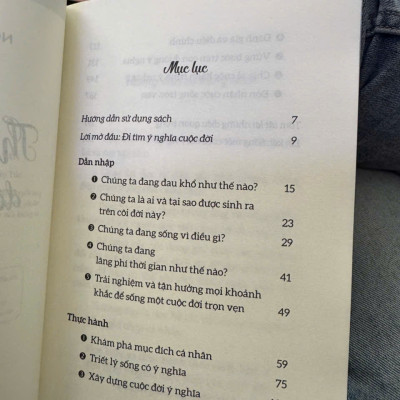 Mục lục
Hướng dẫn sử dụng sách 7
Lời mở đầu: Đi tìm ý nghĩa cuộc đời 9
Dẫn nhập
❶ Chúng ta đang đau khổ như thế nào? 15
❷ Chúng ta là ai và tại sao được sinh ra
trên cõi đời này? 23
❸ Chúng ta đang sống vì điều gì? 29
❹ Chúng ta đang
lãng phí thời gian như thế nào? 41
❺ Trải nghiệm và tận hưởng mọi khoảnh
khắc để sống một cuộc đời trọn vẹn 49
Thực hành
❶ Khám phá mục đích cá nhân 59
❷ Triết lý sống có ý nghĩa 75
❸ Xây dựng cuộc đời ý nghĩa